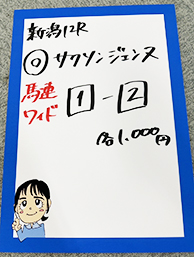 新潟12R
◎サクソンジェンヌ
馬連
ワイド
1-2
各1,000円